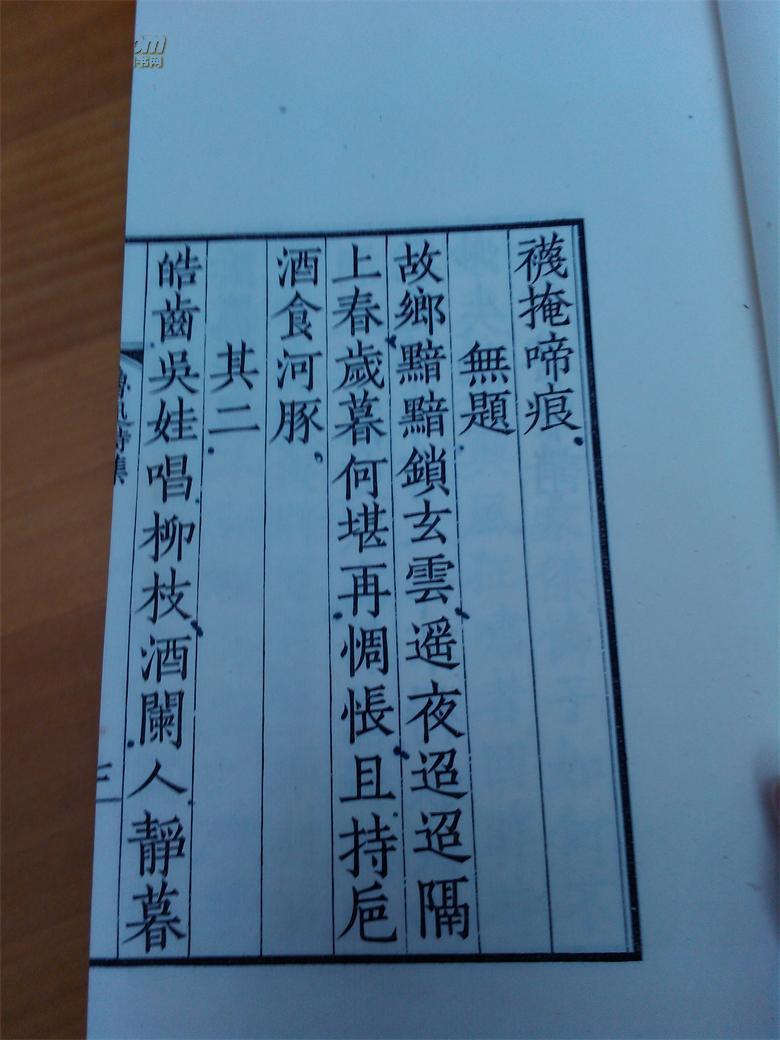 襪掩啼痕
無題
故鄉黯黯鎖玄雲遥夜迢迢隔
上春歲暮何堪再惆悵且持卮
酒食河豚
其二
皓齒吳娃唱柳枝酒闌人靜暮
三